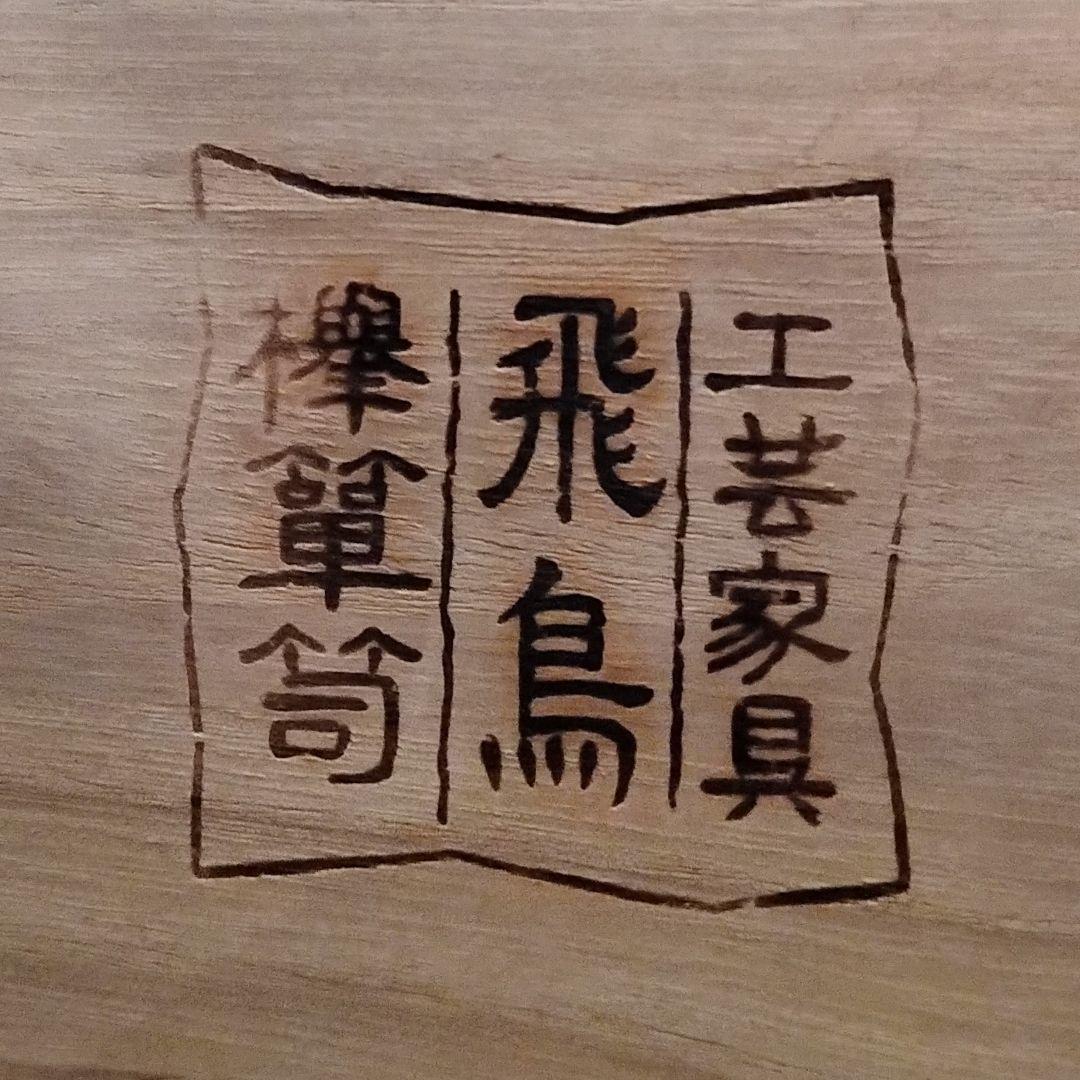 工芸家具
飛鳥
欅簞笥